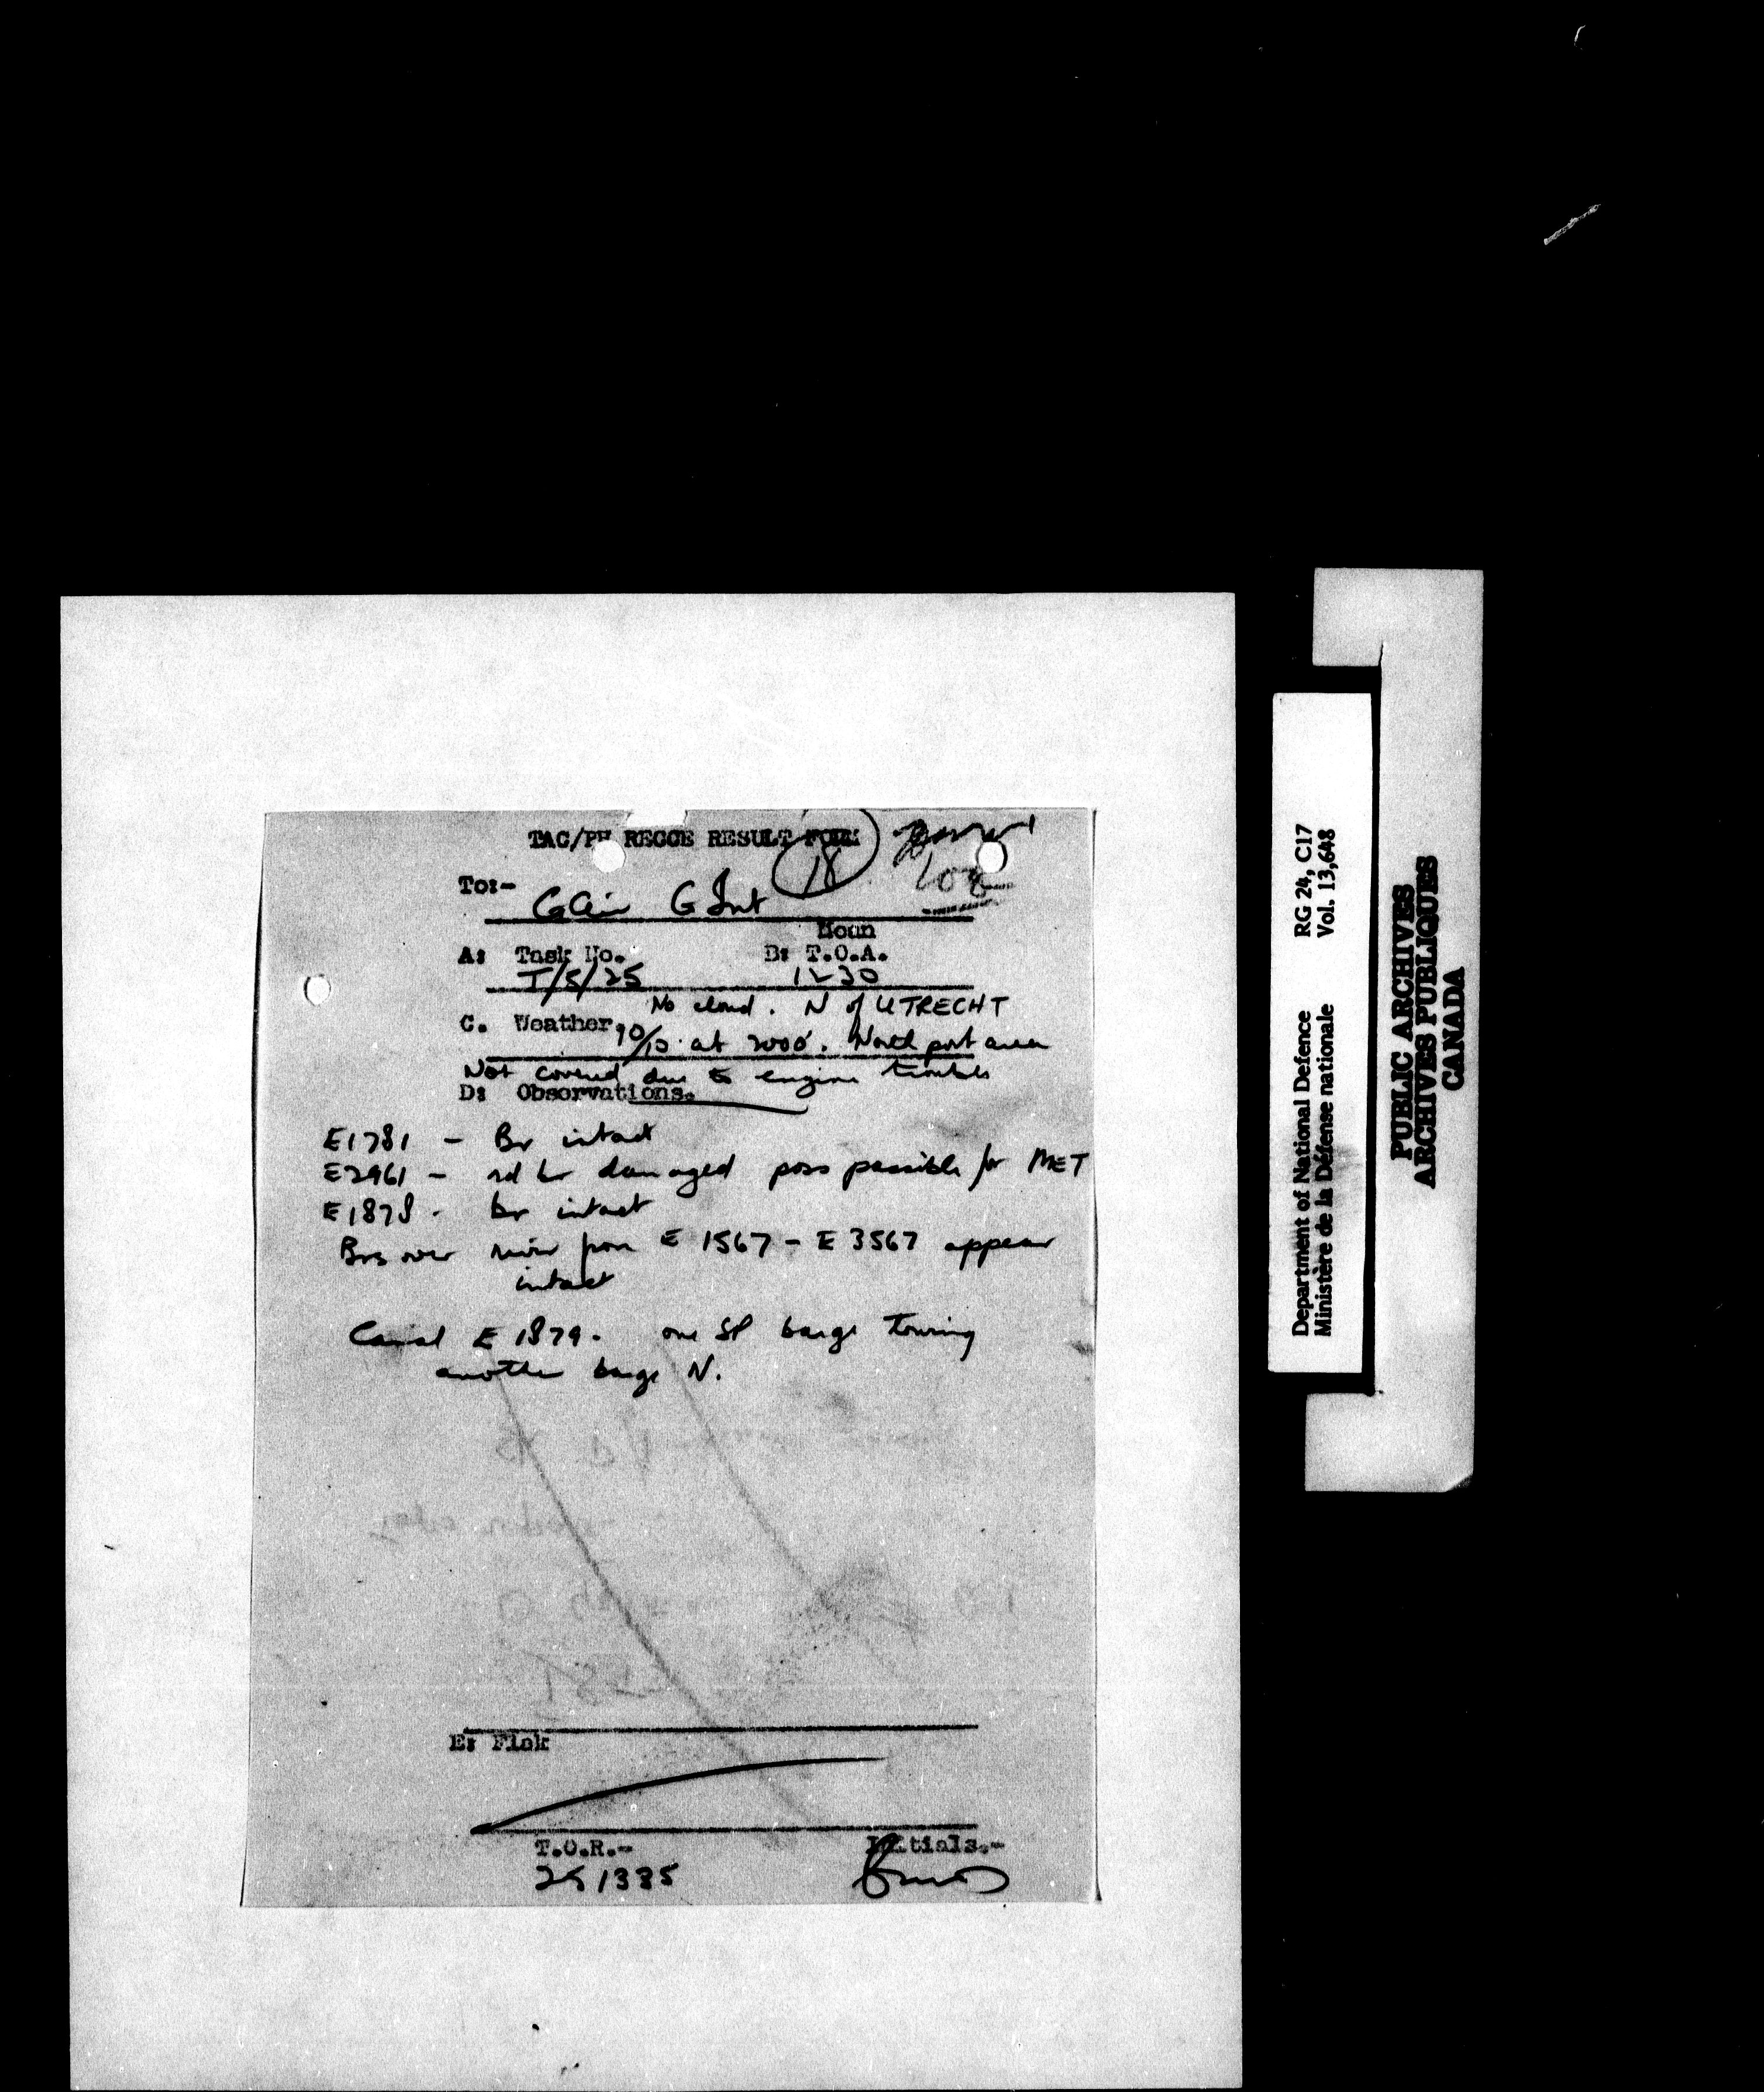 TAC/PH RECCE RESULT FORM
18
108
To:-
G Air G Int
Mean
A: Task No. B: T.O.A.
T/5/25 1230
No cloud. N of UTRECHT
C. Weather. 10/10 at 2000'. North part area
Not covered due to engine trouble
D: Observations.
E1781 - Br intact
E2961 - rd br damaged poss passible for MET
E1878 - br intact
Brs over river from E 1567 - E 3567 appear
intact
Canal E 1879. one SP barge towing
another barge N.
E: Flak
T.O.R.- Initials.-
251335
Department of National Defence RG 24, C17
Ministère de la Défense nationale Vol. 13,648
PUBLIC ARCHIVES
ARCHIVES PUBLIQUES
CANADA